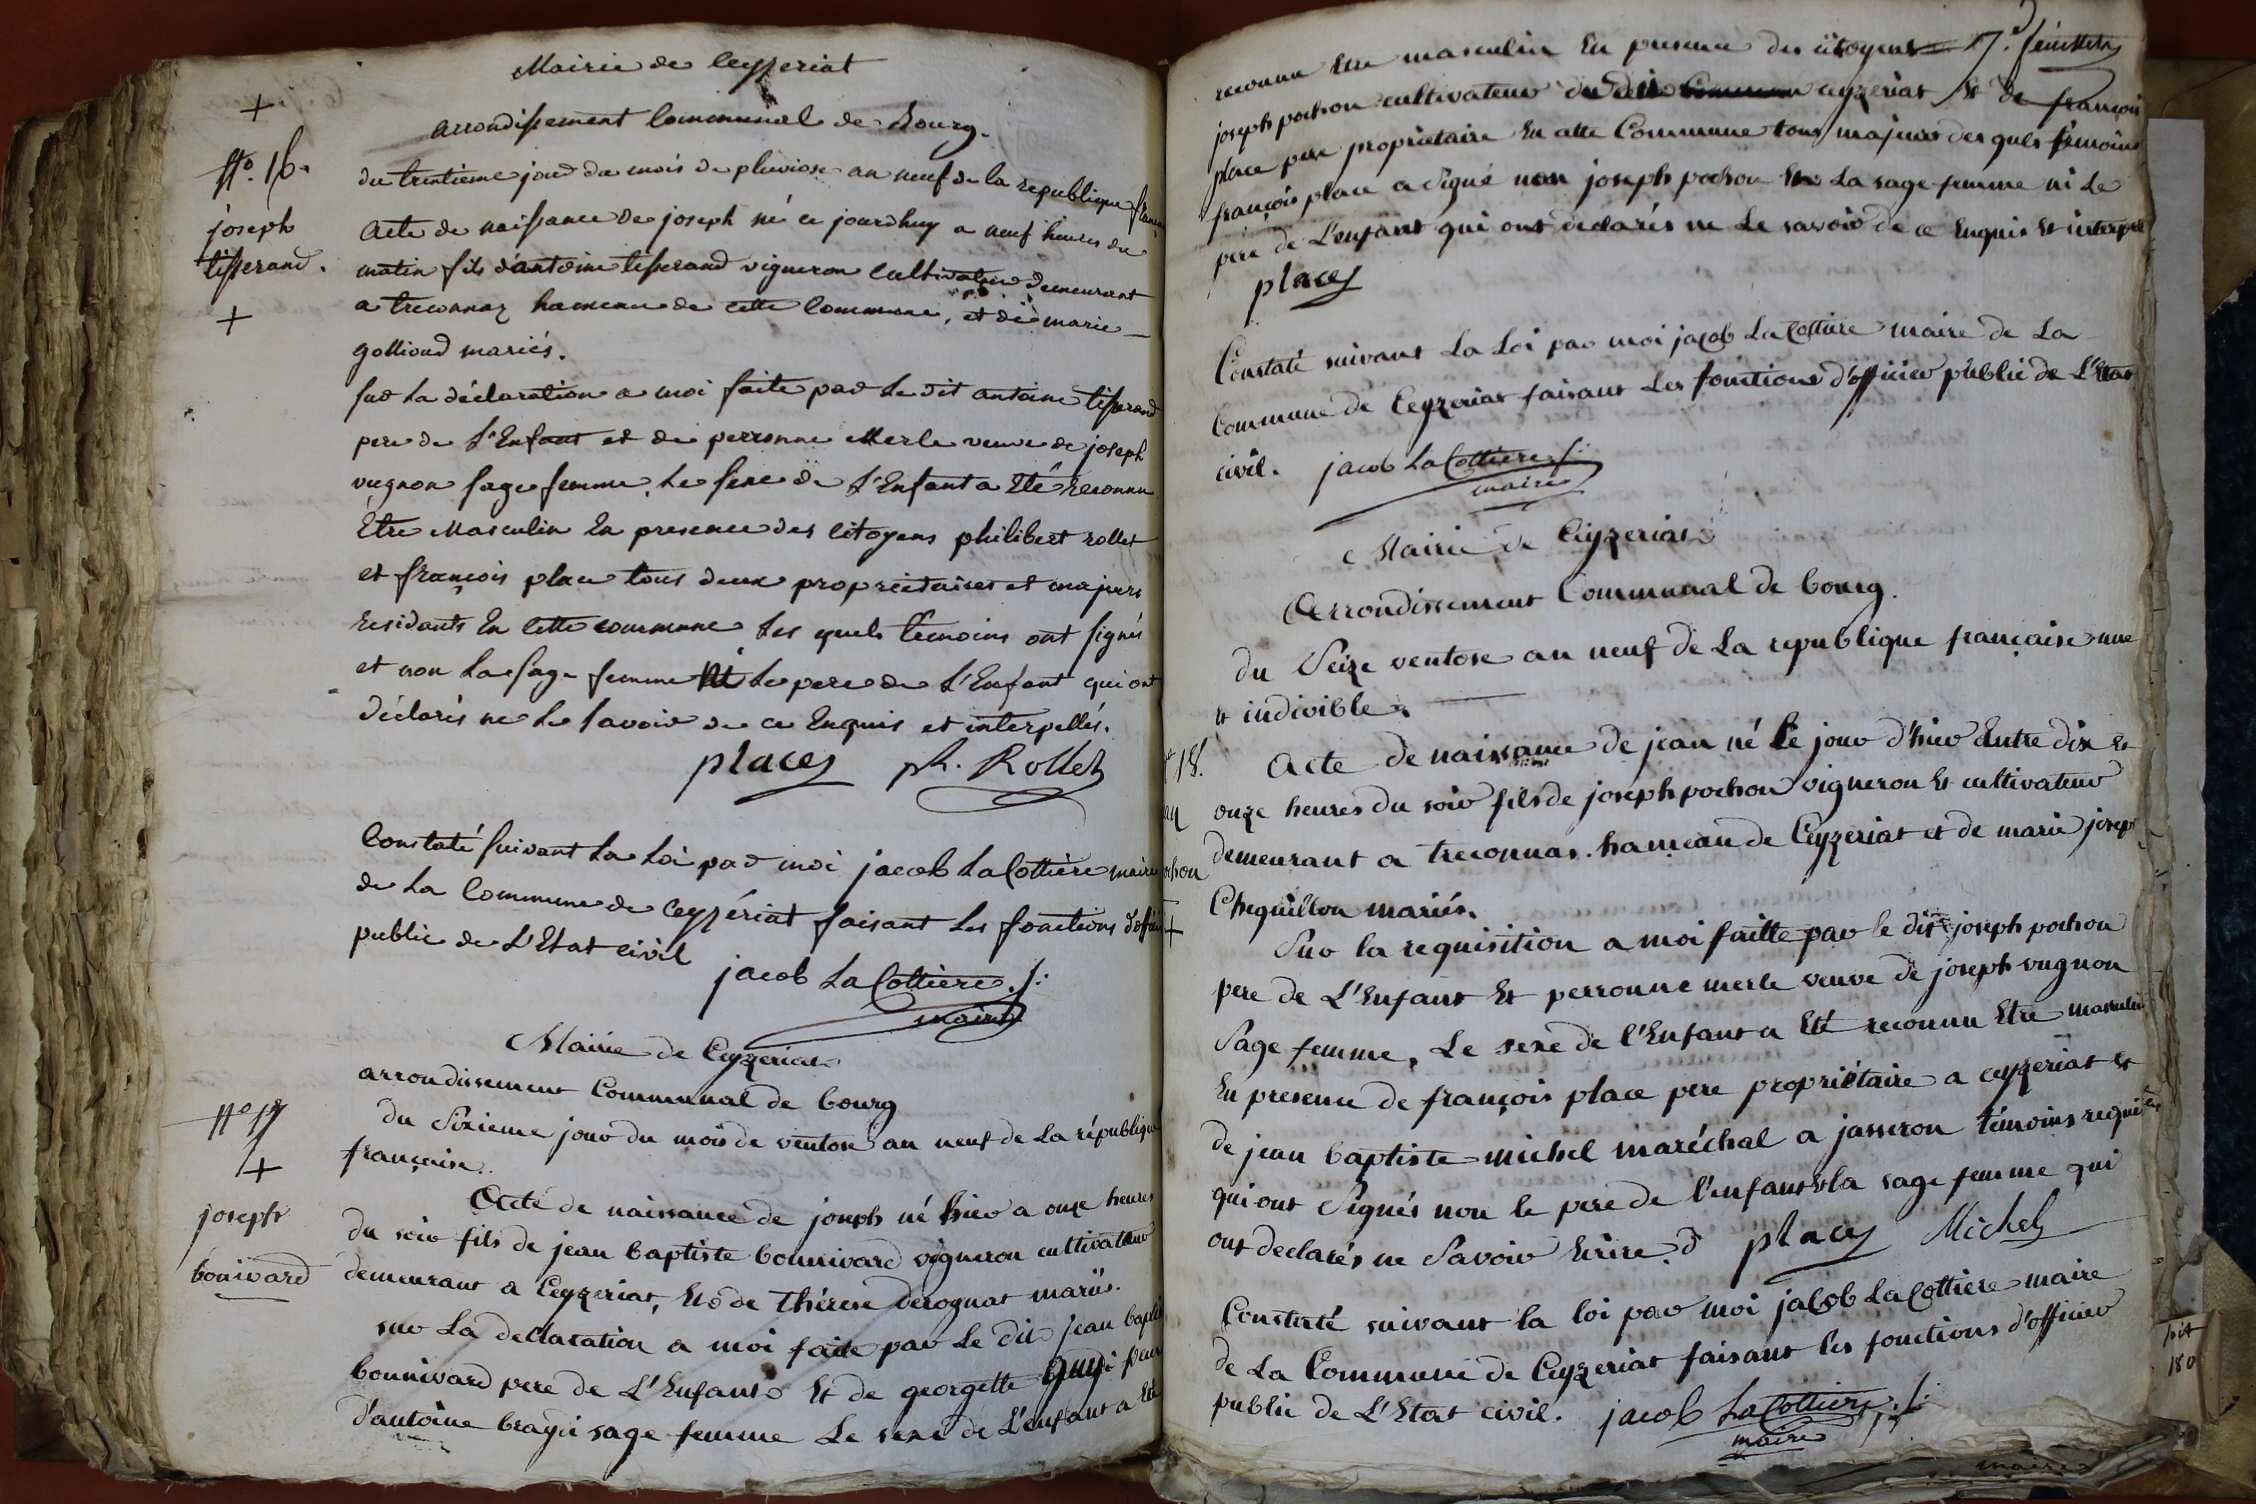 Mairie de Ceyzeriat
arrondissement Communal de Bourg.
N.o 16.
joseph
tisserand.
du trentieme jour du mois de pluviose an neuf de la republique
Acte de naissance de joseph né ce jourdhuy a neuf heures du
matin fils d'antoine tisserand vigneron cultivateur demeurant
a treconnaz hameau de cette Commune, et de marie
gollioud mariés.
sur la déclaration a moi faite par le dit antoine tisserand
pere de l'Enfant et de perronne Merle veuve de joseph
vugnon sage femme, le sexe de l'Enfant a Eté reconnu
Etre Masculin En presence des citoyens philibert rollet
et françois place tous deux proprietaires et majeurs
residants En cette commune les quels temoins ont signés
et non la sage femme Ni le pere de l'Enfant qui ont
déclarés ne le savoir de ce Enquis et interpellés.
place ph. Rollet
Constaté suivant la Loi par moi jacob LaCottière maire
de la Commune de Ceyzériat faisant les fonctions
public de L'Etat civil
jacob LaCottiere
maire
Mairie de Ceyzeriat
arrondissement Communal de bourg
N.o 17
joseph
bonivard
du Sixieme jour du mois de ventose an neuf de La république
française.
Acte de naissance de joseph né hier a onze heures
du soir fils de jean baptiste bonnivard vigneron cultivateur
demeurant a Ceyzeriat, Et de thérese derognat mariés.
sur La declaration a moi faite par Le dit jean
bonnivard pere de L'Enfant Et de georgette
d'antoine sage femme Le sexe de L'enfant a Eté
7.e feuillet
reconnu Etre masculin En presence des citoyens
joseph pochon cultivateur ceyzeriat Et de françois
place pere proprietaire En cette Commune tous majeurs des quels temoins
françois place a signé non joseph pochon La sage femme ni Le
pere de L'enfant qui ont déclarés ne Le savoir de ce Enquis Et
place
Constaté suivant La Loi par moi jacob LaCottiere maire de La
Commune de Ceyzeriat faisant Les fonctions d'officier public de L'Etat
civil. jacob LaCottiere
maire
Mairie de Ceyzeriat
Arrondissement Communal de bourg.
du Seize ventose an neuf de La republique française une
et indivible.
18.
Acte de naissance de jean né le jour d'hier Entre dix Et
onze heures du soir fils de joseph pochon vigneron Et cultivateur
demeurant a treconnas. hameau de Ceyzeriat et de marie
Chequillon mariés.
Sur la requisition a moi faitte par le dit joseph pochon
pere de L'Enfant Et perronne merle veuve de joseph vugnon
Sage femme, Le sexe de l'Enfant a Eté reconnu Etre masculin
En presence de françois place pere propriétaire a ceyzeriat et
de jean baptiste michel maréchal a jasseron témoins requis
qui ont Signés non le pere de l'enfant la sage femme qui
ont declarés ne Savoir Ecrire. place Michel
Constaté suivant la loi par moi jacob LaCottiere maire
de La Commune de Ceyzeriat faisant les fonctions d'officier
public de L'Etat civil. jacob LaCottiere
maire